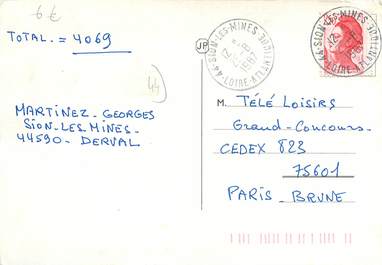 6 €
TOTAL. = 4069
44
MARTINEZ. GEORGES
SION-LES-MINES-
44590-DERVAL
JP
44-SION-LES-MINES
LOIRE-ATLANTIQUE
44-SION-LES-MINES
LOIRE-ATLANTIQUE
M. TÉLÉ LOISIRS
Grand-Concours-
CEDEX 823
75601
PARIS-BRUNE